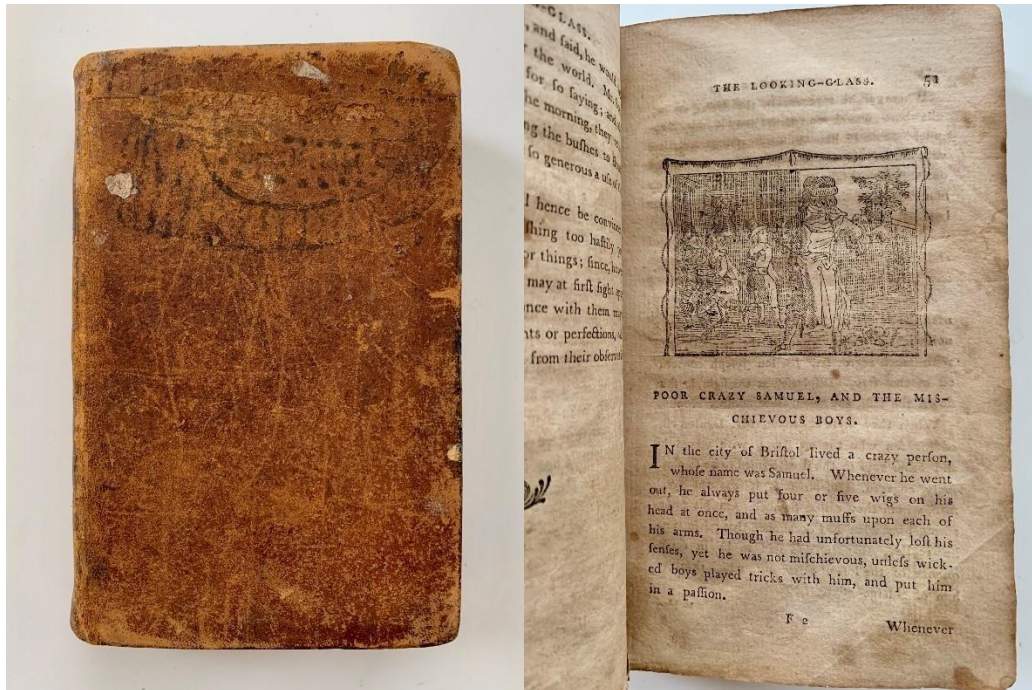 GLASS.
, and ſaid, he would
the world.
for ſo ſaying; and
he morning, they
the buſhes to
ſo generous a uſe of
hence be
too haſtily
or things; ſince,
may at firſt ſight
nce with them
nts or perfections,
from their
THE LOOKING-GLASS. 51
POOR CRAZY SAMUEL, AND THE MIS-
CHIEVOUS BOYS.
IN the city of Briſtol lived a crazy perſon,
whoſe name was Samuel. Whenever he went
out, he always put four or five wigs on his
head at once, and as many muffs upon each of
his arms. Though he had unfortunately loſt his
ſenſes, yet he was not miſchievous, unleſs wick-
ed boys played tricks with him, and put him
in a paſſion.
F 2
Whenever